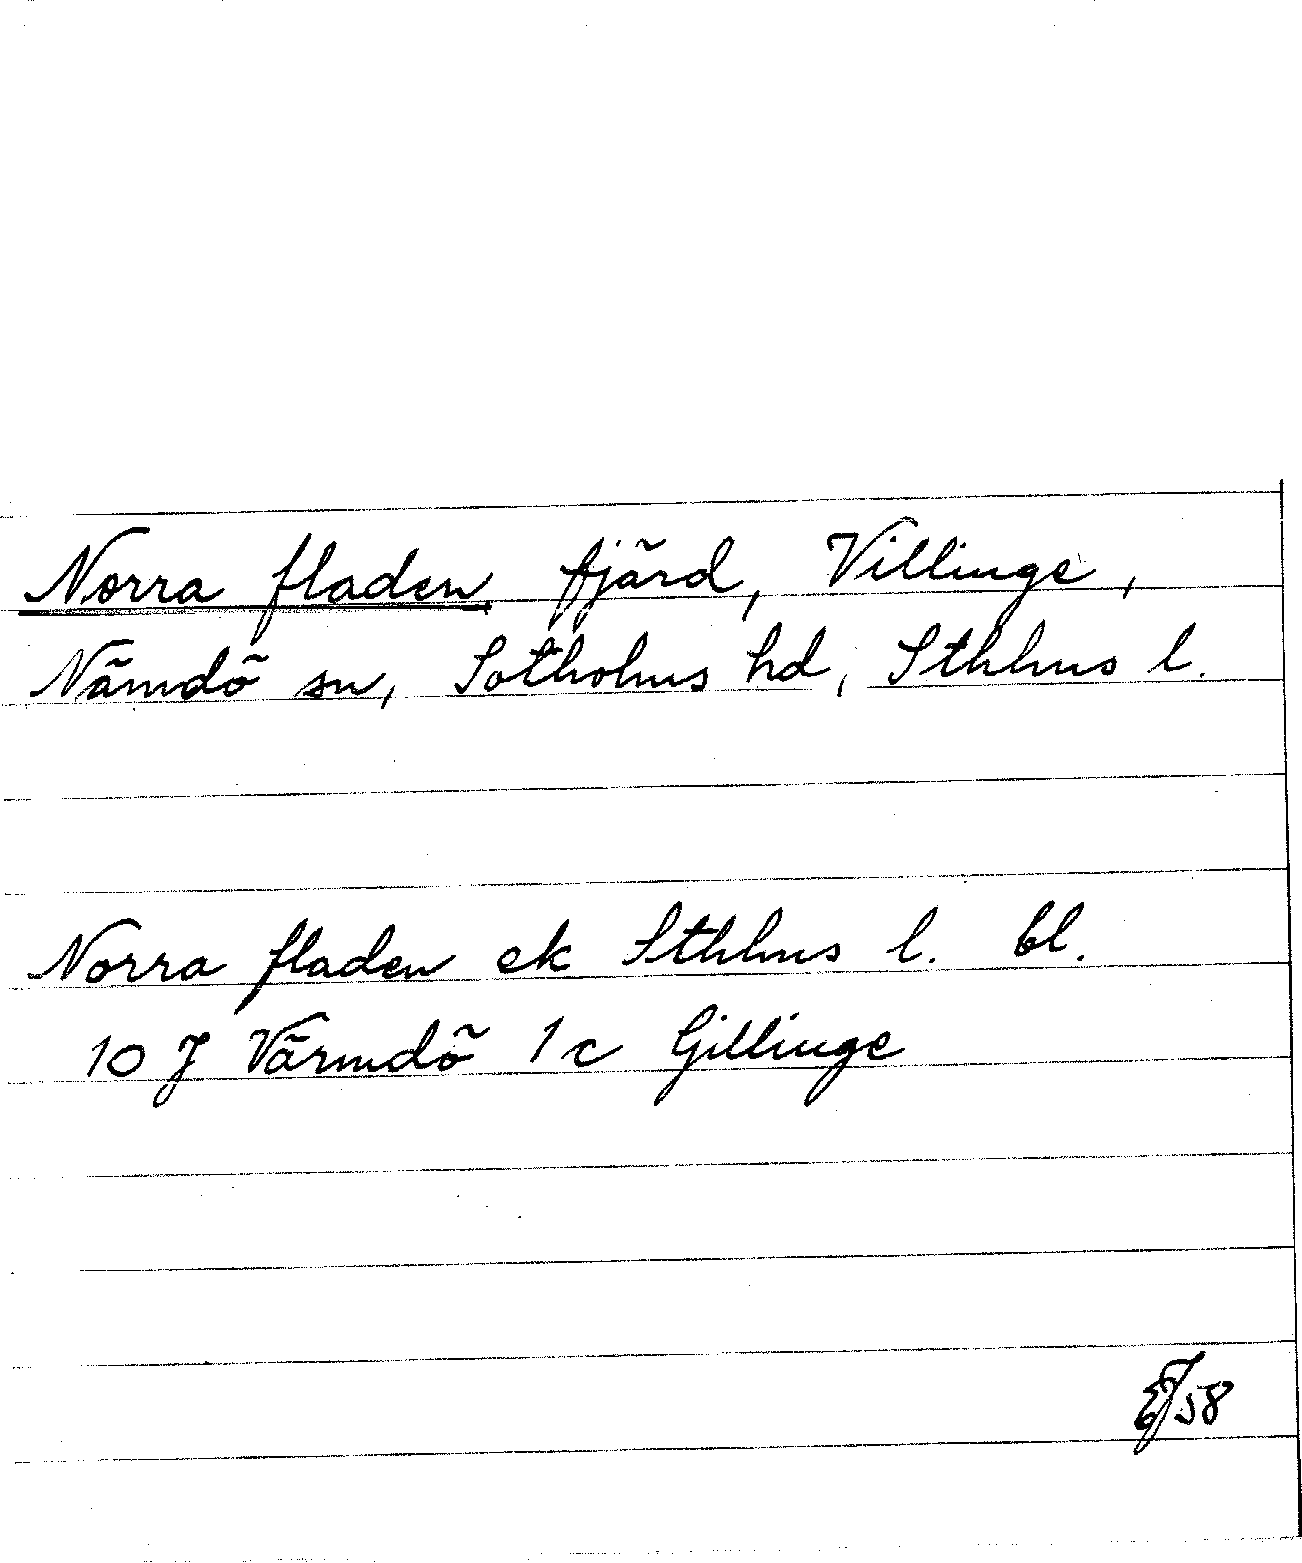 Norra fladen fjärd, Villinge,
Nämdö sn, Sotholms hd, Sthlms l.
Norra fladen ek Sthlms l. bl.
10 J Värmdö 1 c Gillinge
EJ/58